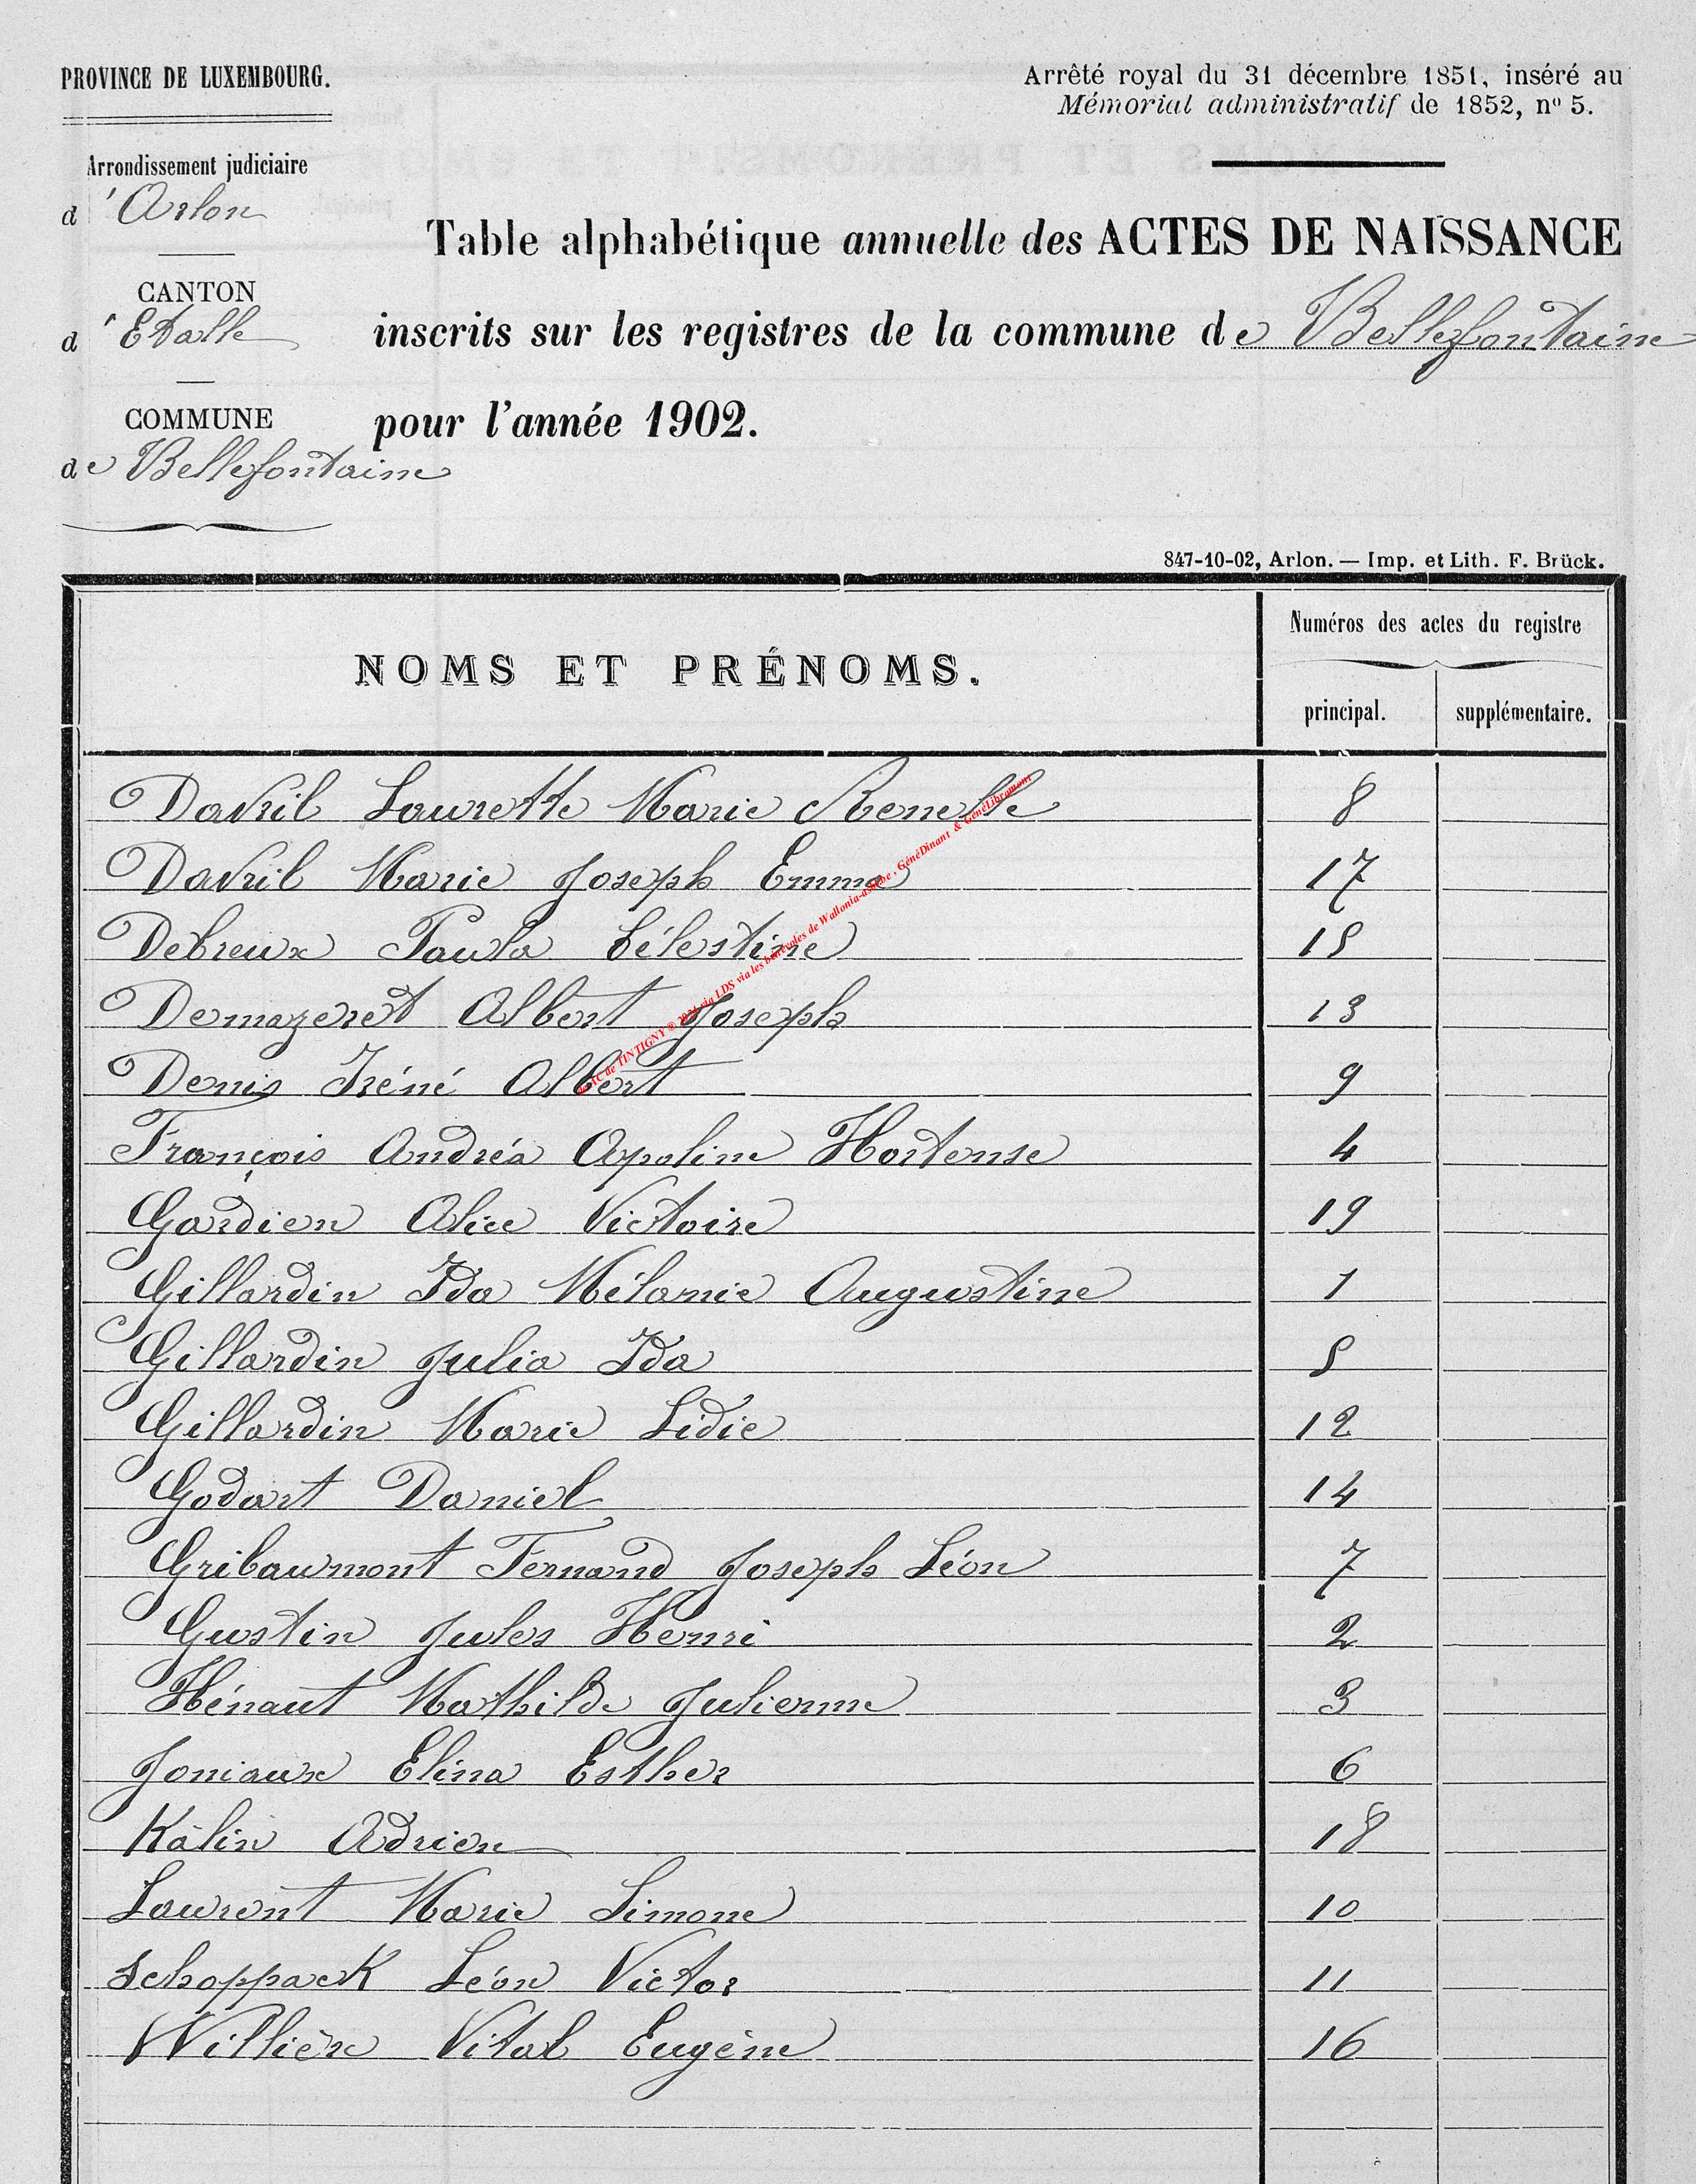 PROVINCE DE LUXEMBOURG.
Arrêté royal du 31 décembre 1851, inséré au
Mémorial administratif de 1852, nº 5.
Arrondissement judiciaire
d'Arlon
CANTON
d'Etalle
COMMUNE
de Bellefontaine
Table alphabétique annuelle des ACTES DE NAISSANCE
inscrits sur les registres de la commune de Bellefontaine
pour l'année 1902.
847-10-02, Arlon. — Imp. et Lith. F. Brück.
NOMS ET PRÉNOMS.
Numéros des actes du registre
principal. supplémentaire.
Davril Laurette Marie Renelle 8
Davril Marie Joseph Emma 17
Debreux Paula Célestine 15
Demazeret Albert Joseph 13
Denis Iréné Albert 9
François Andréa Apoline Hortense 4
Gardien Alice Victoire 19
Gillardin Ida Mélanie Augustine 1
Gillardin Julia Ida 5
Gillardin Marie Lidie 12
Godart Daniel 14
Gribaumont Fernand Joseph Léon 7
Gustin Jules Henri 2
Hénaut Mathilde Julienne 3
Joniaux Elina Esther 6
Kalin Adrien 18
Laurent Marie Simone 10
Schoppack Léon Victor 11
Willièx Vital Eugène 16
de TINTIGNY @ 2024 via LDS via les bénévoles de Wallonia-asbl.be, GénéDinant & GénéLibramont